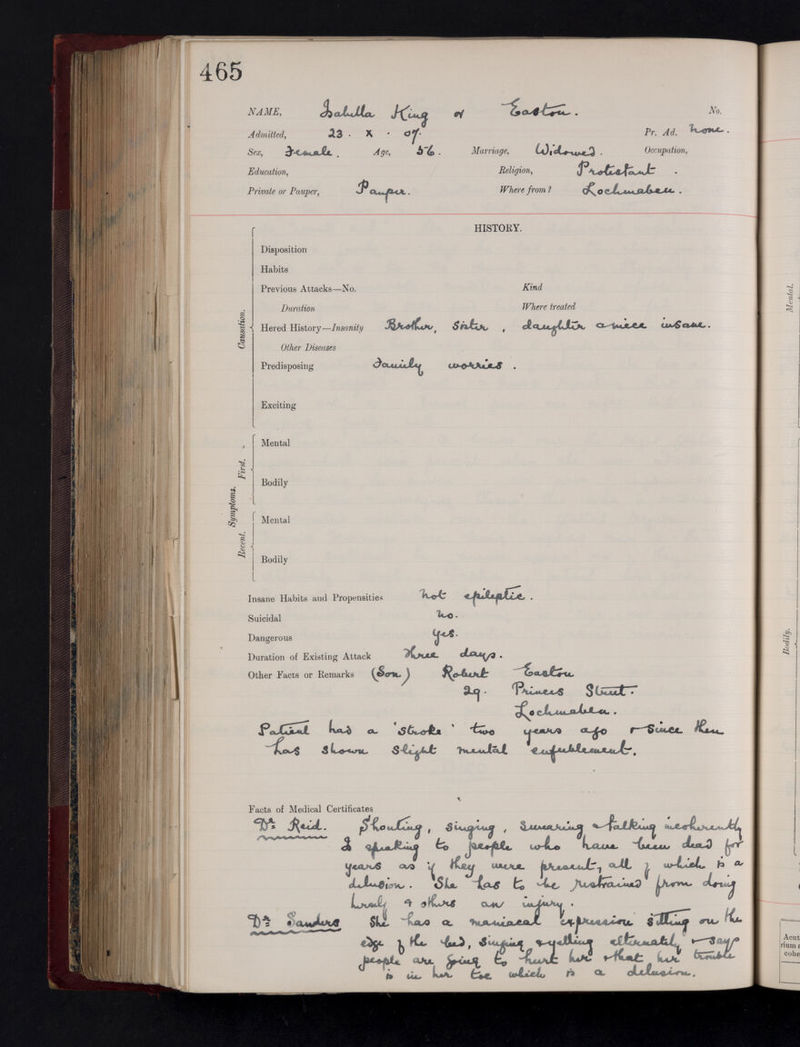 465
NAME, Isabella King or Easton. No.
Admitted, 23 . X . 07. Pr. Ad. none.
Sex, Female. Age, 56. Marriage, Widowed. Occupation,
Education, Religion, Protestant.
Private or Pauper, Pauper. Where from? Lochmaben.
HISTORY.
Causation.
Disposition
Habits
Previous Attacks—No. Kind
Duration Where treated
Hered History—Insanity Brother, Sister, daughter & niece insane.
Other Diseases
Predisposing Family worries.
Exciting
Symptoms.
First.
Mental
Bodily
Recent.
Mental
Bodily
Insane Habits and Propensities not epileptic.
Suicidal no.
Dangerous yes.
Duration of Existing Attack Three days.
Other Facts or Remarks (Son) Robert Easton
29. Princes Street.
Lochmaben.
Patient had a 'stroke' two years ago & since then
has shown slight mental enfeeblement.
Facts of Medical Certificates
Dr. Reid. Shouting, singing, swearing & talking incoherently
& speaking to people who have been dead for
years as if they were present, all of which is a
delusion. She has to be restrained from doing
herself & others an injury.
Dr. Sanders She has a maniacal expression sitting on the
edge of the bed, singing & yelling alternately & says
people are going to hurt her & that her trouble
is in her toe which is a delusion.
Mental.
Bodily.
Acut
rium
cohe